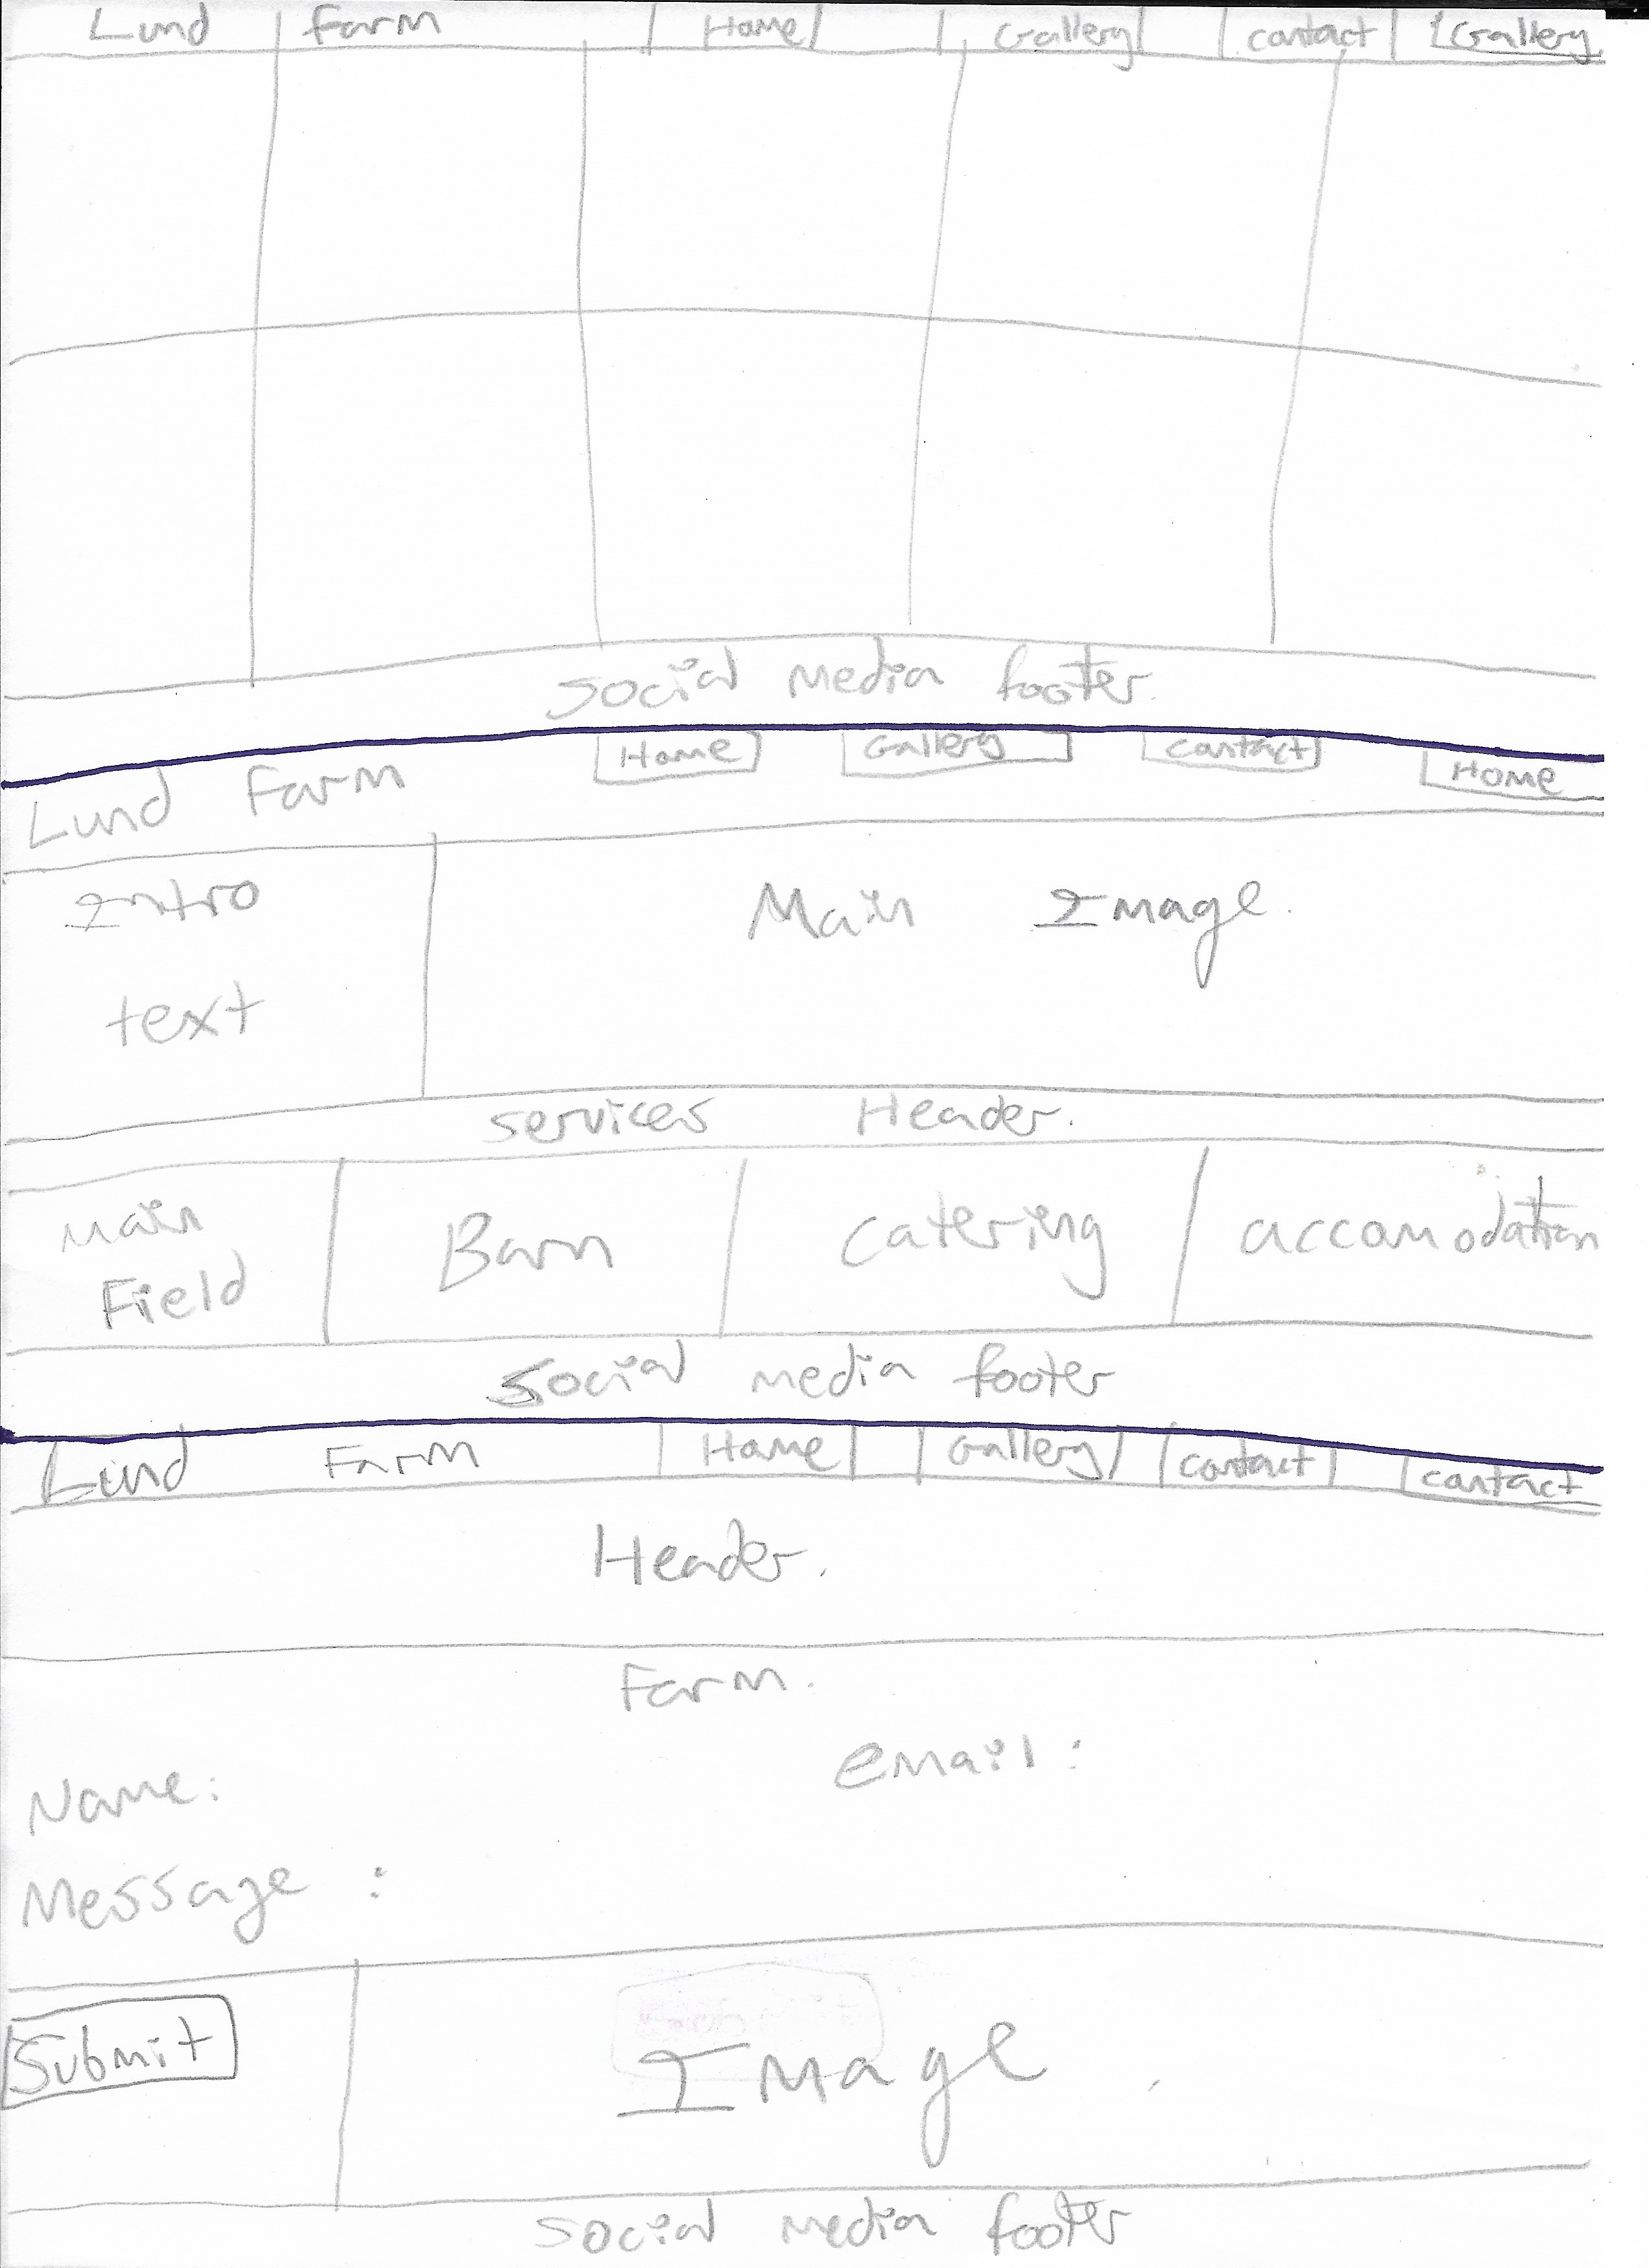 Lund Farm Home Gallery contact Gallery
Social media footer.
Lund Farm Home Gallery contact Home
Intro
text
Main Image.
Services Header.
Main
Field
Barn
catering
accomodation
Social media footer
Lund Farm Home Gallery contact contact
Header.
Form.
Name:
email:
Message :
Submit
Image
Social media footer